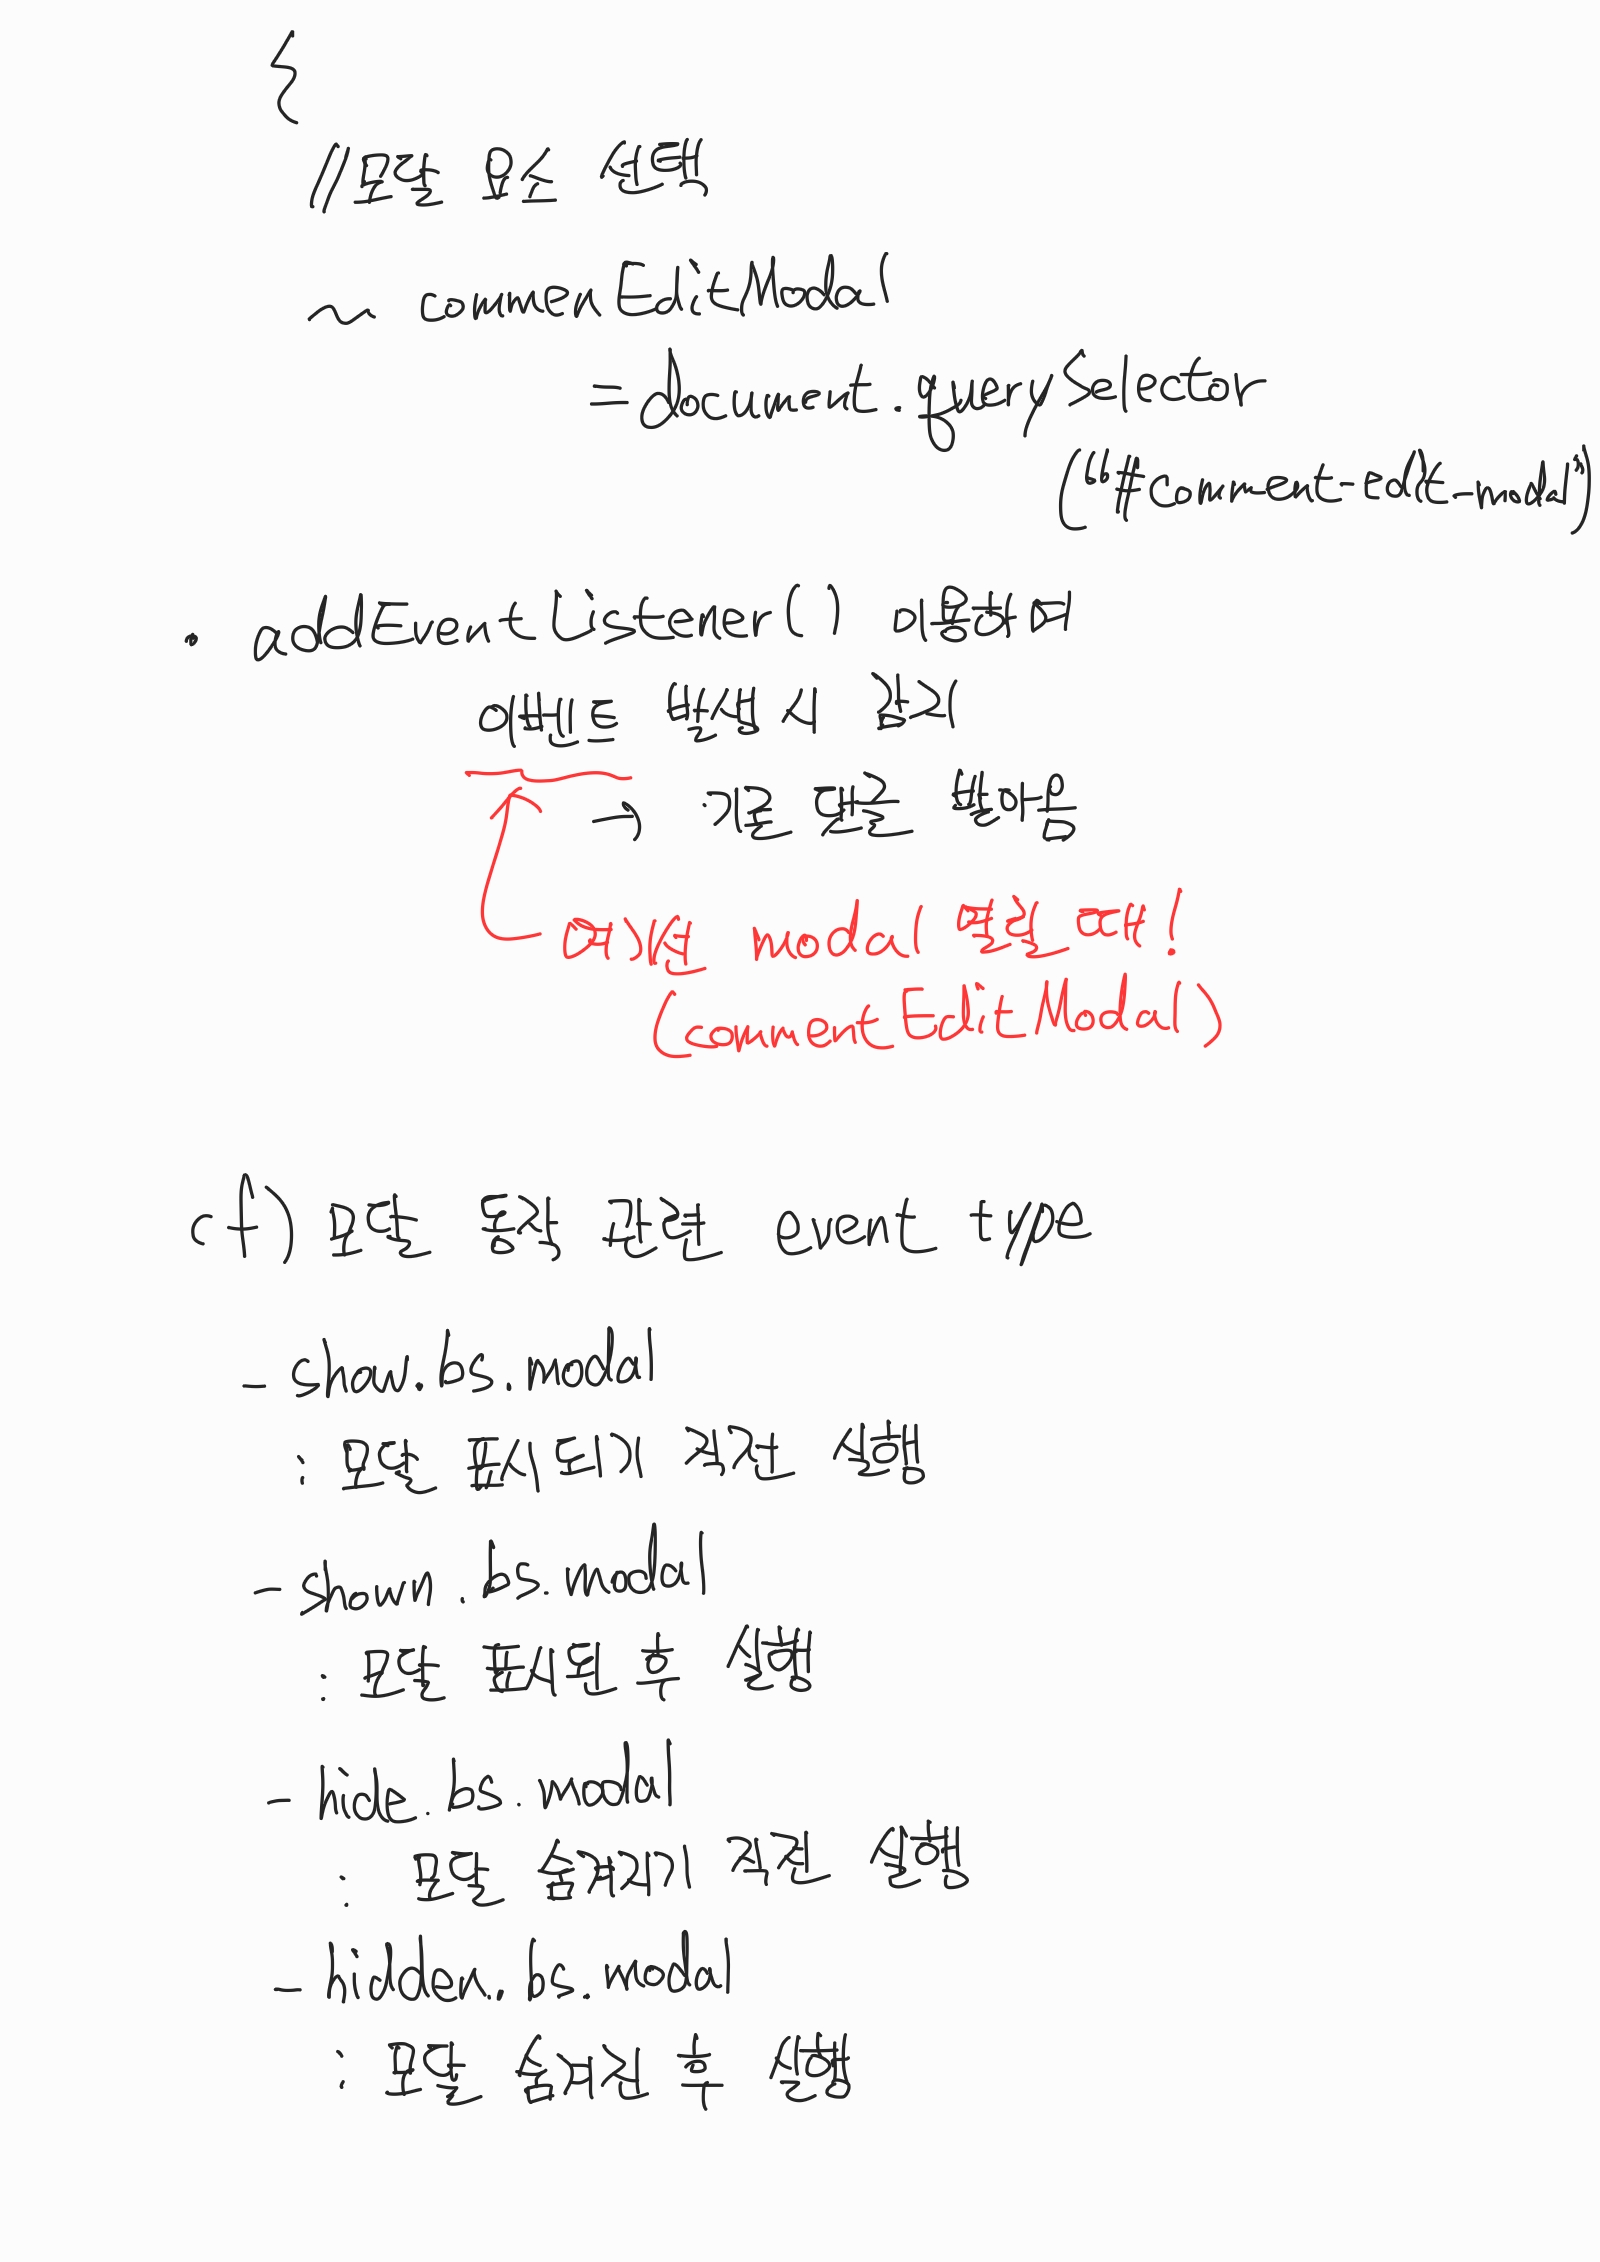 {
//모달 요소 선택
~ commenEditModal
= document.querySelector
("#comment-edit-modal")
• addEventListener() 이용하며
이벤트 발생 시 감지
→ 기로 댓글 받아옴
여기선 modal 열릴 때!
(commentEditModal)
cf) 모달 동작 관련 event type
- show.bs.modal
: 모달 표시되기 직전 실행
- shown.bs.modal
: 모달 표시된 후 실행
- hide.bs.modal
: 모달 숨겨지기 직전 실행
- hidden.bs.modal
: 모달 숨겨진 후 실행